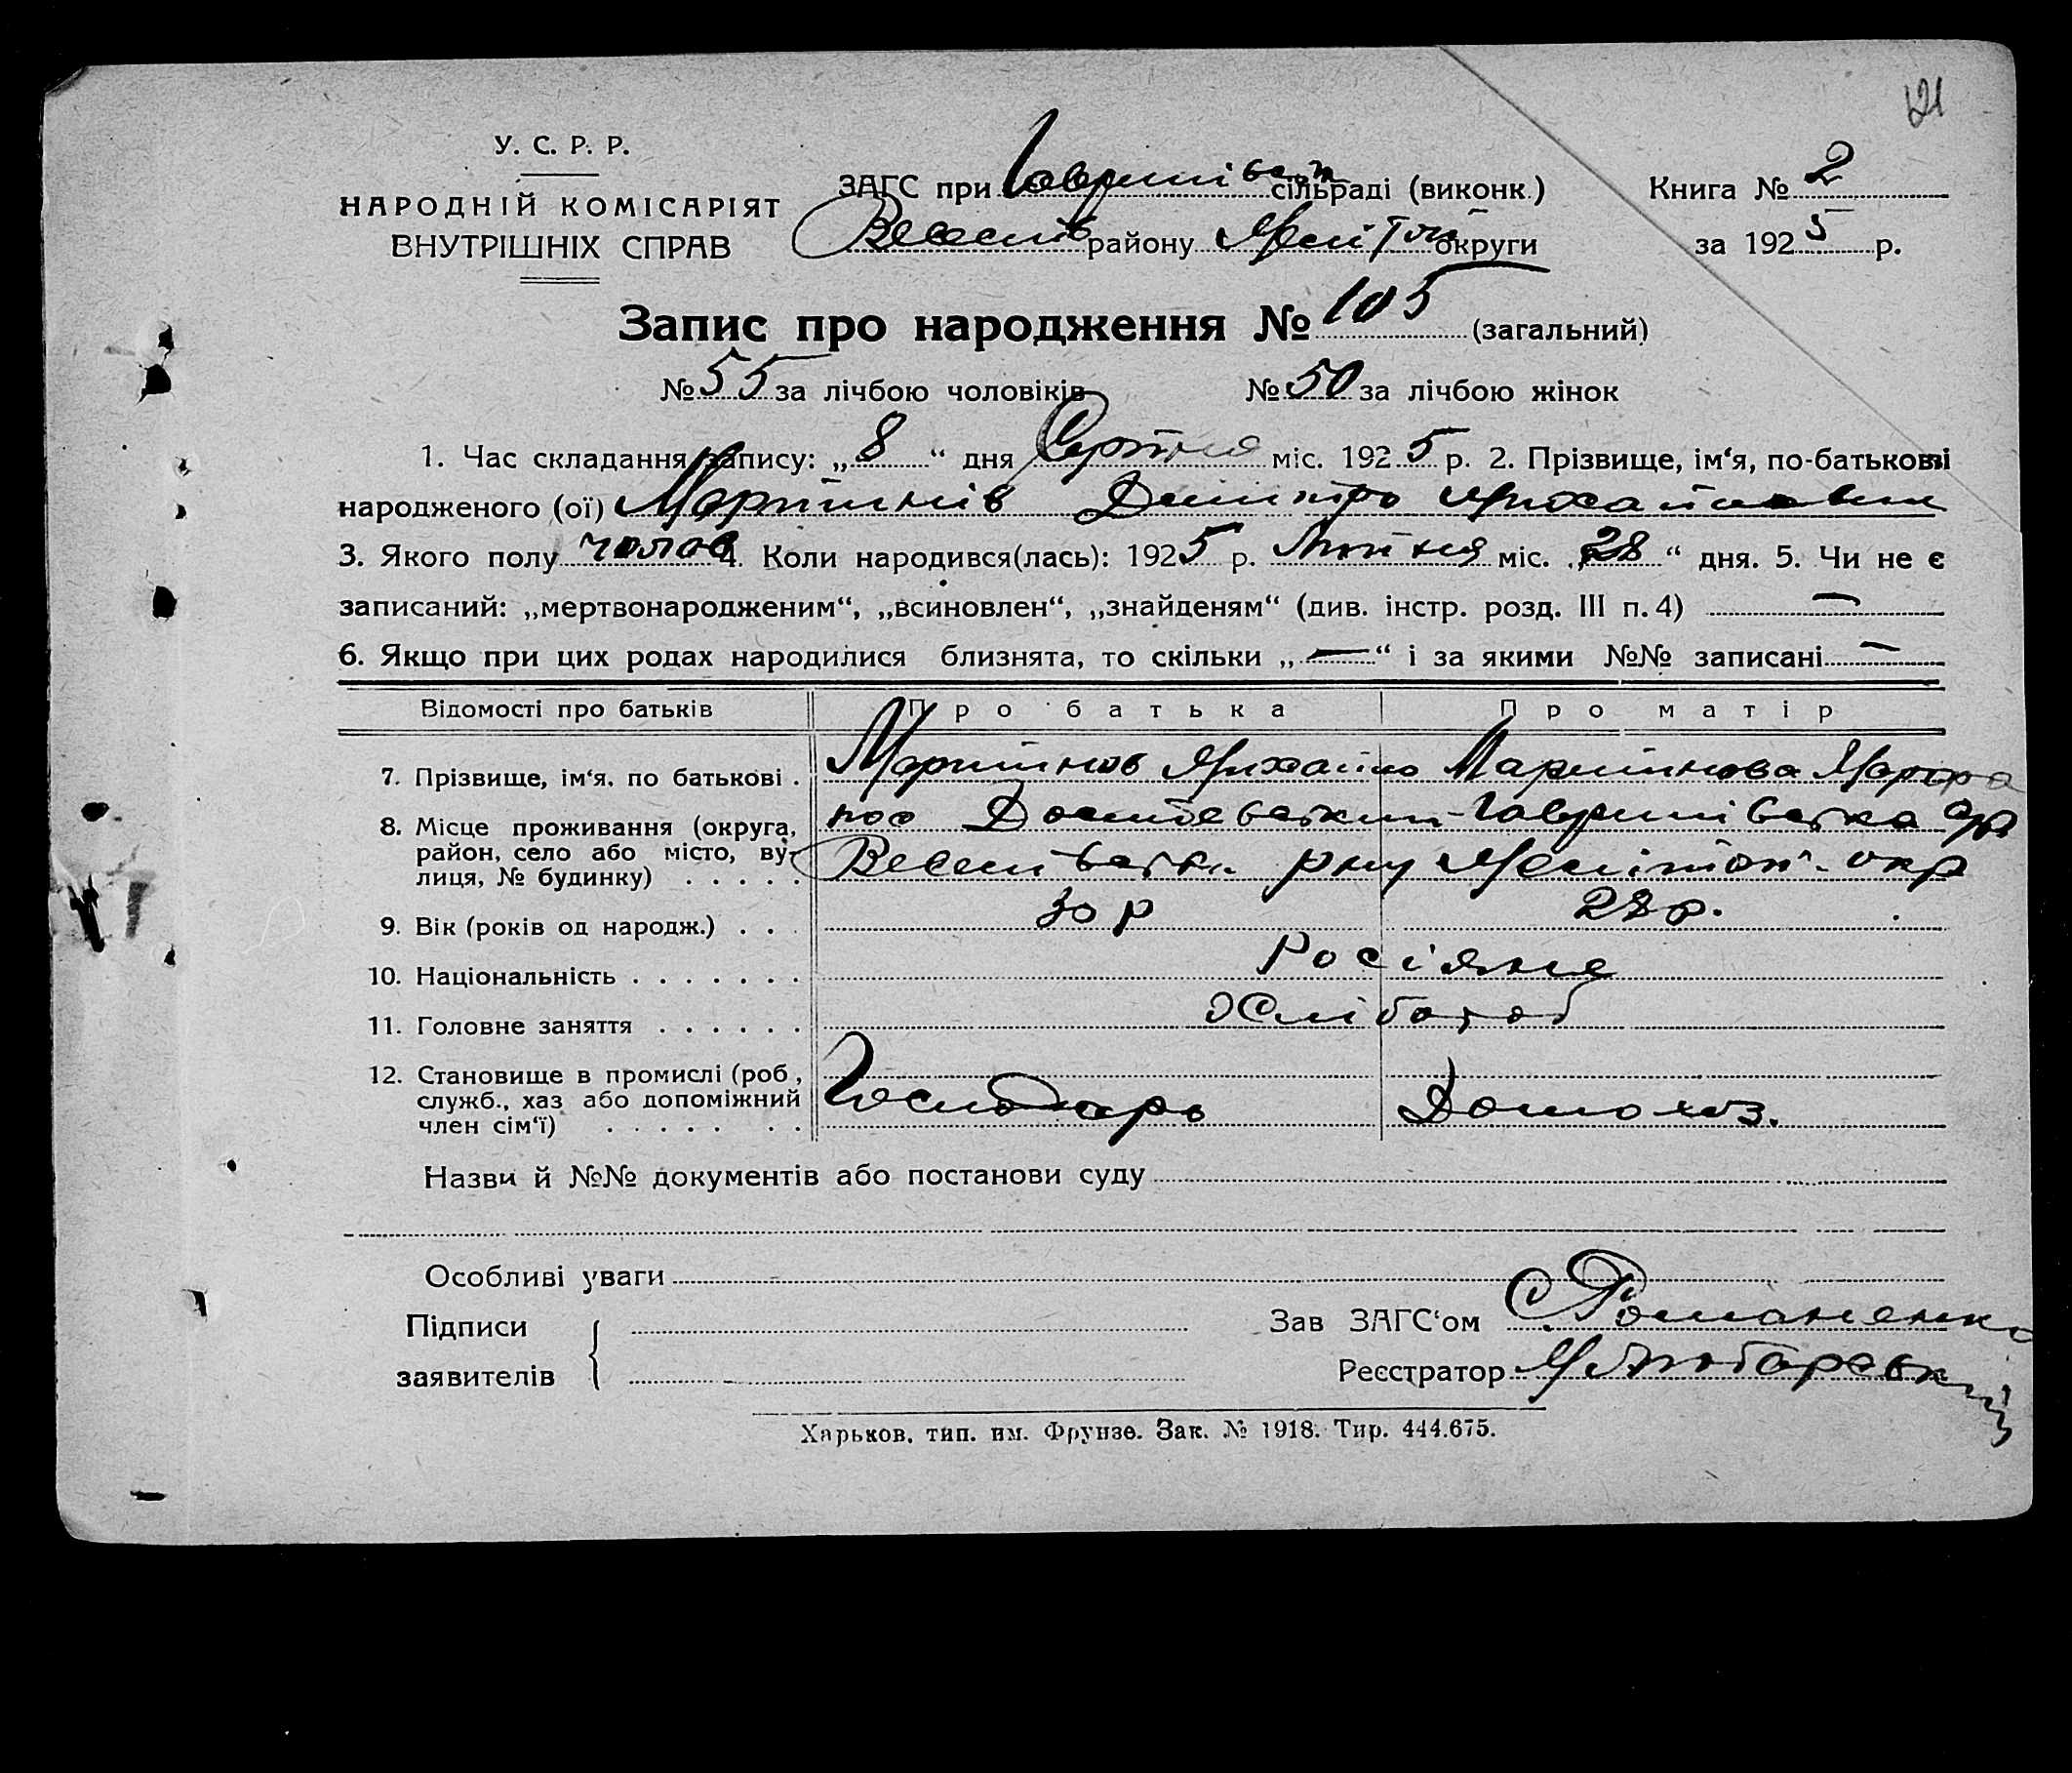 121
У. С. Р. Р.
НАРОДНІЙ КОМІСАРІЯТ
ВНУТРІШНІХ СПРАВ
ЗАГС при Гаврилівськ сільраді (виконк.)
Веселів району Меліт округи
Книга № 2
за 1925 р.
Запис про народження № 105 (загальний)
№ 55 за лічбою чоловіків № 50 за лічбою жінок
1. Час складання запису: „8“ дня Серпня міс. 1925 р. 2. Прізвище, ім‘я, по-батькові
народженого (ої) Мартинів Дмитро Михайлович
3. Якого полу чолов 4. Коли народився(лась): 1925 р. Липня міс. „28“ дня. 5. Чи не є
записаний: „мертвонародженим“, „всиновлен“, „знайденям“ (див. інстр. розд. III п. 4) —
6. Якщо при цих родах народилися близнята, то скільки „—“ і за якими №№ записані —
Відомості про батьків Про батька Про матір
7. Прізвище, ім‘я, по батькові . Мартинов Михайло Мартинова Марфа
8. Місце проживання (округа, район, село або місто, вулиця, № будинку) . . . . . пос Гаврилівська
Веселівськ. рну Меліноп. окр
9. Вік (років од народж.) . . . 30 р 28 р.
10. Національність . . . . . . . Росіяне
11. Головне заняття . . . . . . Хлібороб
12. Становище в промислі (роб., служб., хаз або допоміжний член сім‘ї) . . . . . . . Господарь Домохоз.
Назви й №№ документів або постанови суду
Особливі уваги
Підписи
заявителів
Зав ЗАГС‘ом С Романенко
Реєстратор
Харьков, тип. им. Фрунзе. Зак. № 1918. Тир. 444.675.